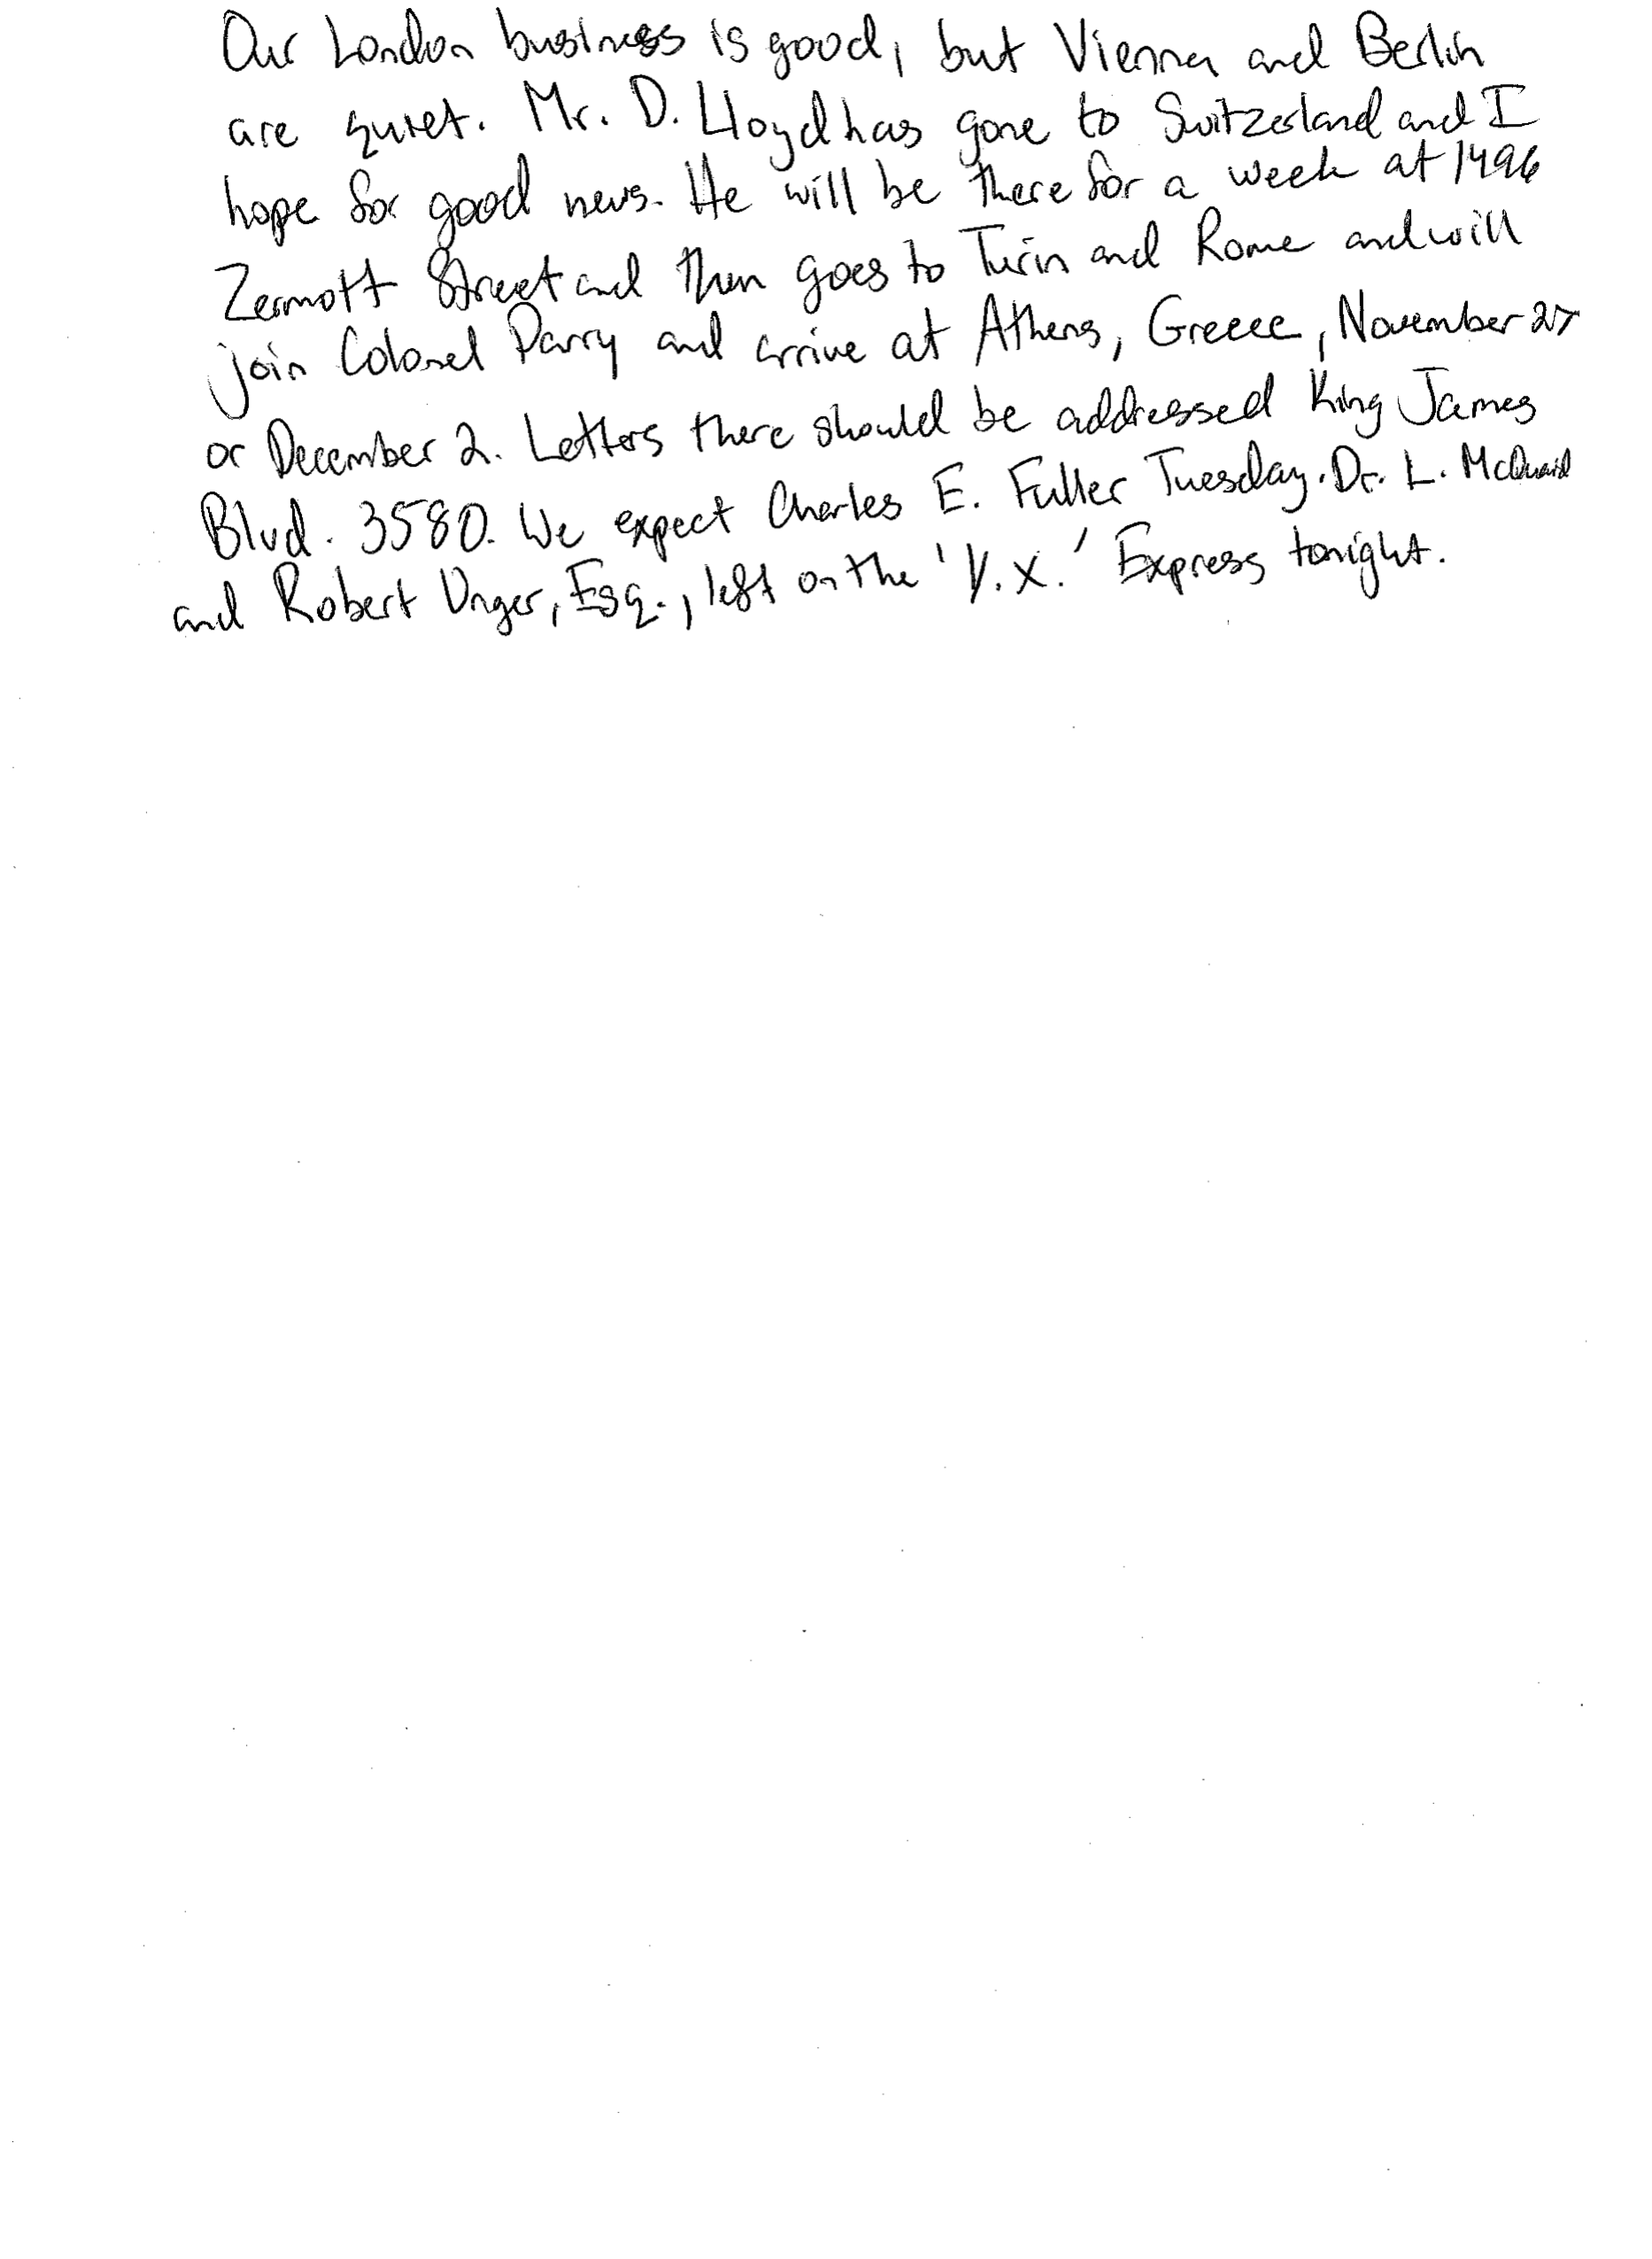 Our London business is good, but Vienna and Berlin
are quiet. Mr. D. Lloyd has gone to Switzerland and I
hope for good news. He will be there for a week at 1496
Zermott Street and then goes to Turin and Rome and will
join Colonel Parry and arrive at Athens, Greece, November 27
or December 2. Letters there should be addressed King James
Blvd. 3580. We expect Charles E. Fuller Tuesday. Dr. L. McQuaid
and Robert Unger, Esq., left on the 'V.X.' Express tonight.